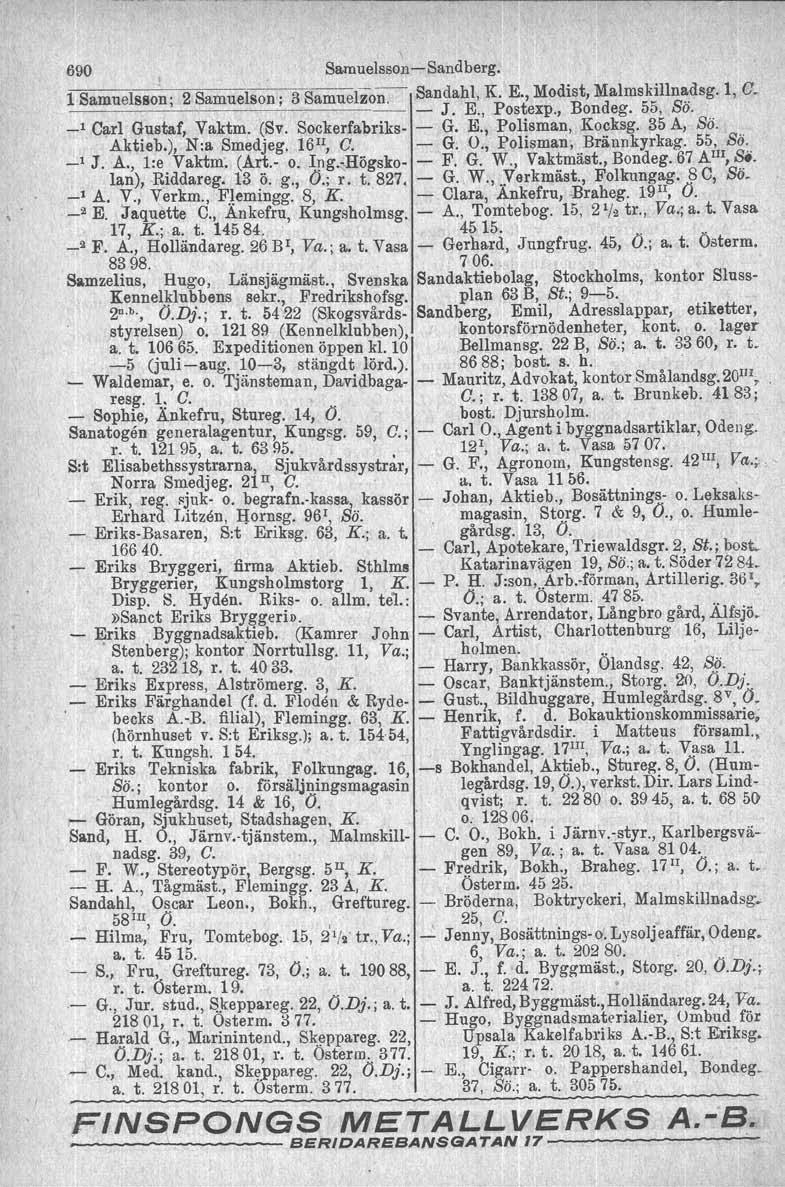 690
Samuelsson—Sandberg.
1 Samuelsson; 2 Samuelson; 3 Samuelzon.
—¹ Carl Gustaf, Vaktm. (Sv. Sockerfabriks-
Aktieb.), N:a Smedjeg. 16II, C.
—¹ J. A., 1:e Vaktm. (Art.- o. Ing.-Högsko-
lan), Riddareg. 13 ö. g., Ö.; r. t. 827.
—¹ A. V., Verkm., Flemingg. 8, K.
—² E. Jaquette C., Änkefru, Kungsholmsg.
17, K.; a. t. 145 84.
—² F. A., Holländareg. 26 B I, Va.; a. t. Vasa
83 98.
Samzelius, Hugo, Länsjägmäst., Svenska
Kennelklubbens sekr., Fredrikshofsg.
2n.b., Ö.Dj.; r. t. 54 22 (Skogsvårds-
styrelsen) o. 121 89 (Kennelklubben),
a. t. 106 65. Expeditionen öppen kl. 10
—5 (juli—aug. 10—3, stängdt lörd.).
— Waldemar, e. o. Tjänsteman, Davidbaga-
resg. 1, C.
— Sophie, Änkefru, Stureg. 14, Ö.
Sanatogén generalagentur, Kungsg. 59, C.;
r. t. 121 95, a. t. 63 95.
S:t Elisabethssystrarna, Sjukvårdssystrar,
Norra Smedjeg. 21II, C.
— Erik, reg. sjuk- o. begrafn.-kassa, kassör
Erhard Litzén, Hornsg. 96I, Sö.
— Eriks-Basaren, S:t Eriksg. 63, K.; a. t.
166 40.
— Eriks Bryggeri, firma Aktieb. Sthlms
Bryggerier, Kungsholmstorg 1, K.
Disp. S. Hydén. Riks- o. allm. tel.:
»Sanct Eriks Bryggeri».
— Eriks Byggnadsaktieb. (Kamrer John
Stenberg); kontor Norrtullsg. 11, Va.;
a. t. 232 18, r. t. 40 33.
— Eriks Express, Alströmerg. 3, K.
— Eriks Färghandel (f. d. Flodén & Ryde-
becks A.-B. filial), Flemingg. 63, K.
(hörnhuset v. S:t Eriksg.); a. t. 154 54,
r. t. Kungsh. 1 54.
— Eriks Tekniska fabrik, Folkungag. 16,
Sö.; kontor o. försäljningsmagasin
Humlegårdsg. 14 & 16, Ö.
— Göran, Sjukhuset, Stadshagen, K.
Sand, H. O., Järnv.-tjänstem., Malmskill-
nadsg. 39, C.
— F. W., Stereotypör, Bergsg. 5II, K.
— H. A., Tågmäst., Flemingg. 23 A, K.
Sandahl, Oscar Leon., Bokh., Greftureg.
58III, Ö.
— Hilma, Fru, Tomtebog. 15, 2 1/2 tr., Va.;
a. t. 45 15.
— S., Fru, Greftureg. 73, Ö.; a. t. 190 88,
r. t. Österm. 19.
— G., Jur. stud., Skeppareg. 22, Ö.Dj.; a. t.
218 01, r. t. Österm. 3 77.
— Harald G., Marinintend., Skeppareg. 22,
Ö.Dj.; a. t. 218 01, r. t. Österm. 377.
— C., Med. kand., Skeppareg. 22, Ö.Dj.;
a. t. 218 01, r. t. Österm. 3 77.
Sandahl, K. E., Modist, Malmskillnadsg. 1, C.
— J. E., Postexp., Bondeg. 55, Sö.
— G. E., Polisman, Kocksg. 35 A, Sö.
— G. O., Polisman, Brännkyrkag. 55, Sö.
— F. G. W., Vaktmäst., Bondeg. 67 A III, Sö.
— G. W., Verkmäst., Folkungag. 8 C, Sö.
— Clara, Änkefru, Braheg. 19II, Ö.
— A., Tomtebog. 15, 2 1/2 tr., Va.; a. t. Vasa
45 15.
— Gerhard, Jungfrug. 45, Ö.; a. t. Österm.
7 06.
Sandaktiebolag, Stockholms, kontor Sluss-
plan 63 B, St.; 9—5.
Sandberg, Emil, Adresslappar, etiketter,
kontorsförnödenheter, kont. o. lager
Bellmansg. 22 B, Sö.; a. t. 33 60, r. t.
86 88; bost. s. h.
— Mauritz, Advokat, kontor Smålandsg. 20III,
C.; r. t. 138 07, a. t. Brunkeb. 41 83;
bost. Djursholm.
— Carl O., Agent i byggnadsartiklar, Odeng.
12I, Va.; a. t. Vasa 57 07.
— G. F., Agronom, Kungstensg. 42III, Va.;
a. t. Vasa 11 56.
— Johan, Aktieb., Bosättnings- o. Leksaks-
magasin, Storg. 7 & 9, Ö., o. Humle-
gårdsg. 13, Ö.
— Carl, Apotekare, Triewaldsgr. 2, St.; bost.
Katarinavägen 19, Sö.; a. t. Söder 72 84.
— P. H. J:son, Arb.-förman, Artillerig. 36I,
Ö.; a. t. Österm. 47 85.
— Svante, Arrendator, Långbro gård, Älfsjö.
— Carl, Artist, Charlottenburg 16, Lilje-
holmen.
— Harry, Bankkassör, Ölandsg. 42, Sö.
— Oscar, Banktjänstem., Storg. 20, Ö.Dj.
— Gust., Bildhuggare, Humlegårdsg. 8V, Ö.
— Henrik, f. d. Bokauktionskommissarie,
Fattigvårdsdir. i Matteus församl.,
Ynglingag. 17III, Va.; a. t. Vasa 11.
—s Bokhandel, Aktieb., Stureg. 8, Ö. (Hum-
legårdsg. 19, Ö.), verkst. Dir. Lars Lind-
qvist; r. t. 22 80 o. 39 45, a. t. 68 50
o. 128 06.
— C. O., Bokh. i Järnv.-styr., Karlbergsvä-
gen 89, Va.; a. t. Vasa 81 04.
— Fredrik, Bokh., Braheg. 17II, Ö.; a. t.
Österm. 45 25.
— Bröderna, Boktryckeri, Malmskillnadsg.
25, C.
— Jenny, Bosättnings- o. Lysoljeaffär, Odeng.
6, Va.; a. t. 202 80.
— E. J., f. d. Byggmäst., Storg. 20, Ö.Dj.;
a. t. 224 72.
— J. Alfred, Byggmäst., Holländareg. 24, Va.
— Hugo, Byggnadsmaterialier, Ombud för
Upsala Kakelfabriks A.-B., S:t Eriksg.
19, K.; r. t. 20 18, a. t. 146 61.
— E., Cigarr- o. Pappershandel, Bondeg.
37, Sö.; a. t. 305 75.
FINSPONGS METALLVERKS A.-B.
BERIDAREBANSGATAN 17